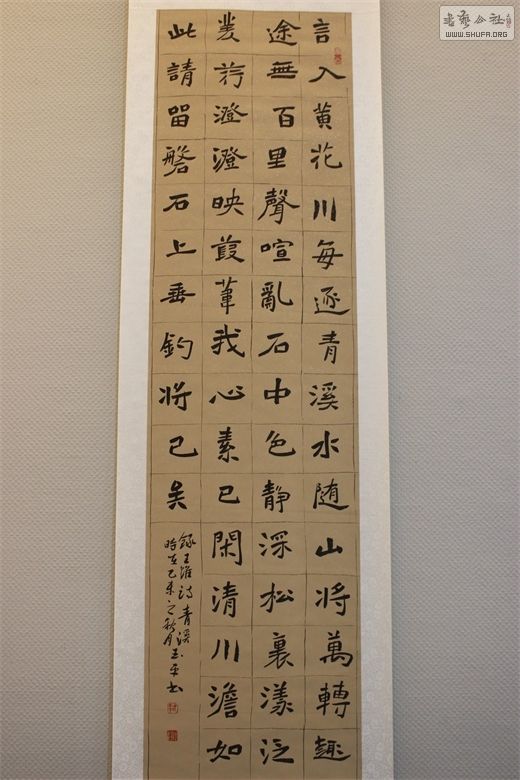 書藝公社
WWW.SHUFA.ORG
言入黃花川每逐青溪水随山將萬轉趣
途無百里聲喧亂石中色静深松裏漾泛
菱荇澄澄映葭葦我心素已閑清川澹如
此請留磐石上垂釣將已矣
錄王維詩青溪
時在乙未之秋月玉平书